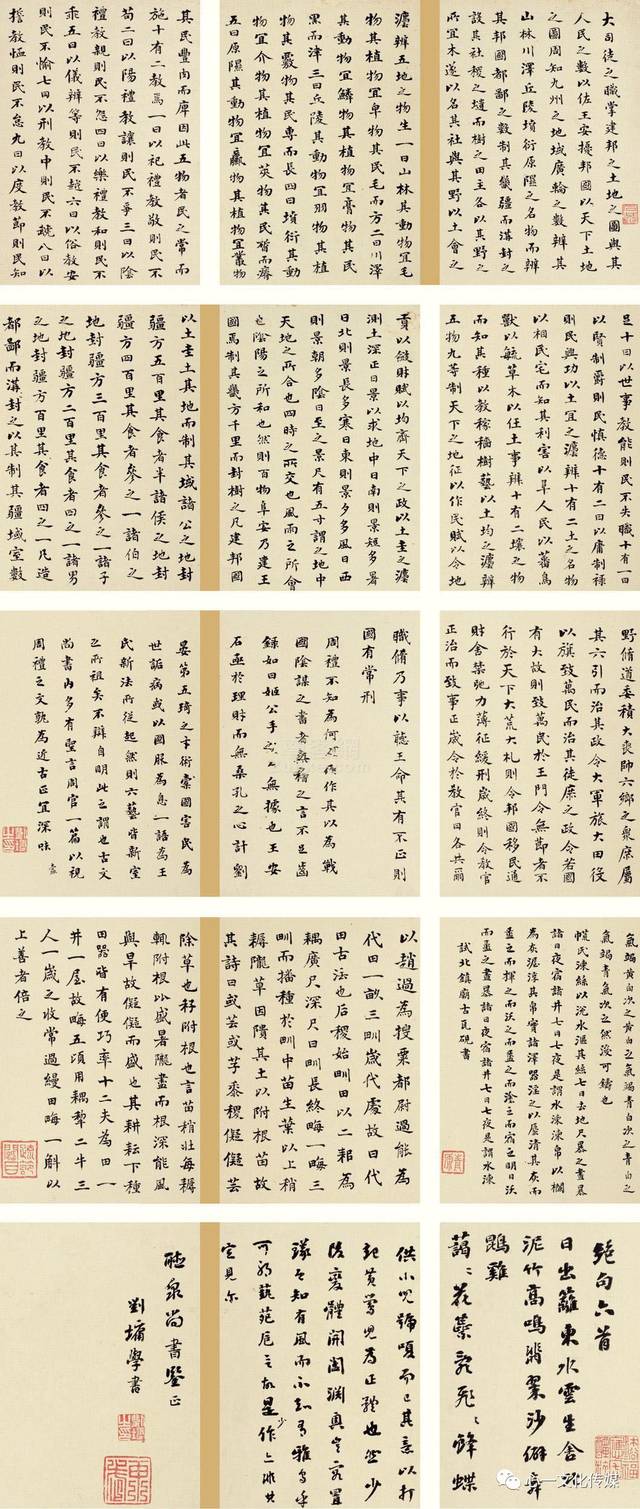 大司徒之職掌建邦之土地之圖與其
人民之數以佐王安擾邦國以天下土地
之圖周知九州之地域廣輪之數辨其
山林川澤丘陵墳衍原隰之名物而辨
其邦國都鄙之數制其畿疆而溝封之
設其社稷之壝而樹之田主各以其野之
所宜木遂以名其社與其野以土會之
灋辨五地之物生一曰山林其動物宜毛
物其植物宜皁物其民毛而方二曰川澤
其動物宜鱗物其植物宜膏物其民
黑而津三曰丘陵其動物宜羽物其植
物宜覈物其民專而長四曰墳衍其動
物宜介物其植物宜莢物其民皙而瘠
五曰原隰其動物宜臝物其植物宜叢物
其民豐肉而庳因此五物者民之常而
施十有二教焉一曰以祀禮教敬則民不
苟二曰以陽禮教讓則民不爭三曰以陰
禮教親則民不怨四曰以樂禮教和則民不
乖五曰以儀辨等則民不越六曰以俗教安
則民不愉七曰以刑教中則民不虣八曰以
誓教恤則民不怠九曰以度教節則民知
足十曰以世事教能則民不失職十有一曰
以賢制爵則民慎德十有二曰以庸制祿
則民興功以土宜之灋辨十有二土之名物
以相民宅而知其利害以阜人民以蕃鳥
獸以毓草木以任土事辨十有二壤之物
而知其種以教稼穡樹藝以土均之灋辨
五物九等制天下之地征以作民賦以令地
貢以斂財賦以均齊天下之政以土圭之灋
測土深正日景以求地中日南則景短多暑
日北則景長多寒日東則景夕多風日西
則景朝多陰日至之景尺有五寸謂之地中
天地之所合也四時之所交也風雨之所會
也陰陽之所和也然則百物阜安乃建王
國焉制其畿方千里而封樹之凡建邦國
以土圭土其地而制其域諸公之地封
疆方五百里其食者半諸侯之地封
疆方四百里其食者參之一諸伯之
地封疆方三百里其食者參之一諸子
之地封疆方二百里其食者四之一諸男
之地封疆方百里其食者四之一凡造
都鄙而溝封之以其制其疆域室數
野脩道委積大喪帥六鄉之衆庶屬
其六引而治其政令大軍旅大田役
以旗致萬民而治其徒庶之政令若國
有大故則致萬民於王門令無節者不
行於天下大荒大札則令邦國移民通
財舍禁弛力薄征緩刑歲終則令教官
正治而致事正歲令於教官曰各共爾
職脩乃事以聽王命其有不正則
國有常刑
周禮不知為何代所作其以為戰
國陰謀之書者無稽之言不足齒
錄如曰姬公手之無據也王安
石亟於理財而無桑孔之心計劉
晏第五琦之才術棄國害民為
世詬病或以國服為息一語為王
氏新法所從起然則六藝皆新室
之所祖矣不辯自明此之謂也古文
尚書內多有聖言周官一篇以視
周禮之文孰為近古正宜深味
氣竭黃白次之黃白之氣竭青白次之青白之
氣竭青氣次之然後可鑄也
㡛氏湅絲以涗水漚其絲七日去地尺暴之晝暴
諸日夜宿諸井七日七夜是謂水湅湅帛以欄
為灰渥淳其帛實諸澤器淫之以蜃清其灰而
盝之而揮之而沃之而盝之而塗之而宿之明日沃
而盝之晝暴諸日夜宿諸井七日七夜是謂水湅
試北鎮廟古瓦硯書
以趙過為搜粟都尉過能為
代田一畝三甽歲代處故曰代
田古法也后稷始甽田以二耜為
耦廣尺深尺曰甽長終晦一晦三
甽而播種於甽中苗生葉以上稍
耨隴草因隤其土以附根苗故
其詩曰或芸或芓黍稷儗儗芸
除草也秄附根也言苗稍壯每耨
輒附根比盛暑隴盡而根深能風
與旱故儗儗而盛也其耕耘下種
田器皆有便巧率十二夫為田一
井一屋故晦五頃用耦犂二牛三
人一歲之收常過縵田晦一斛以
上善者倍之
絕句六首
日出籬東水雲生舍北
泥竹高鳴翡翠沙僻舞
鵾雞
藹藹花蘂亂飛飛蜂蝶
供小兒號嗄而已其意以打
起黃鶯兒為正體也然少
陵變體開闔淵奧
可
定見尔
聽泉尚書鑒正
劉墉學書
心一文化传媒